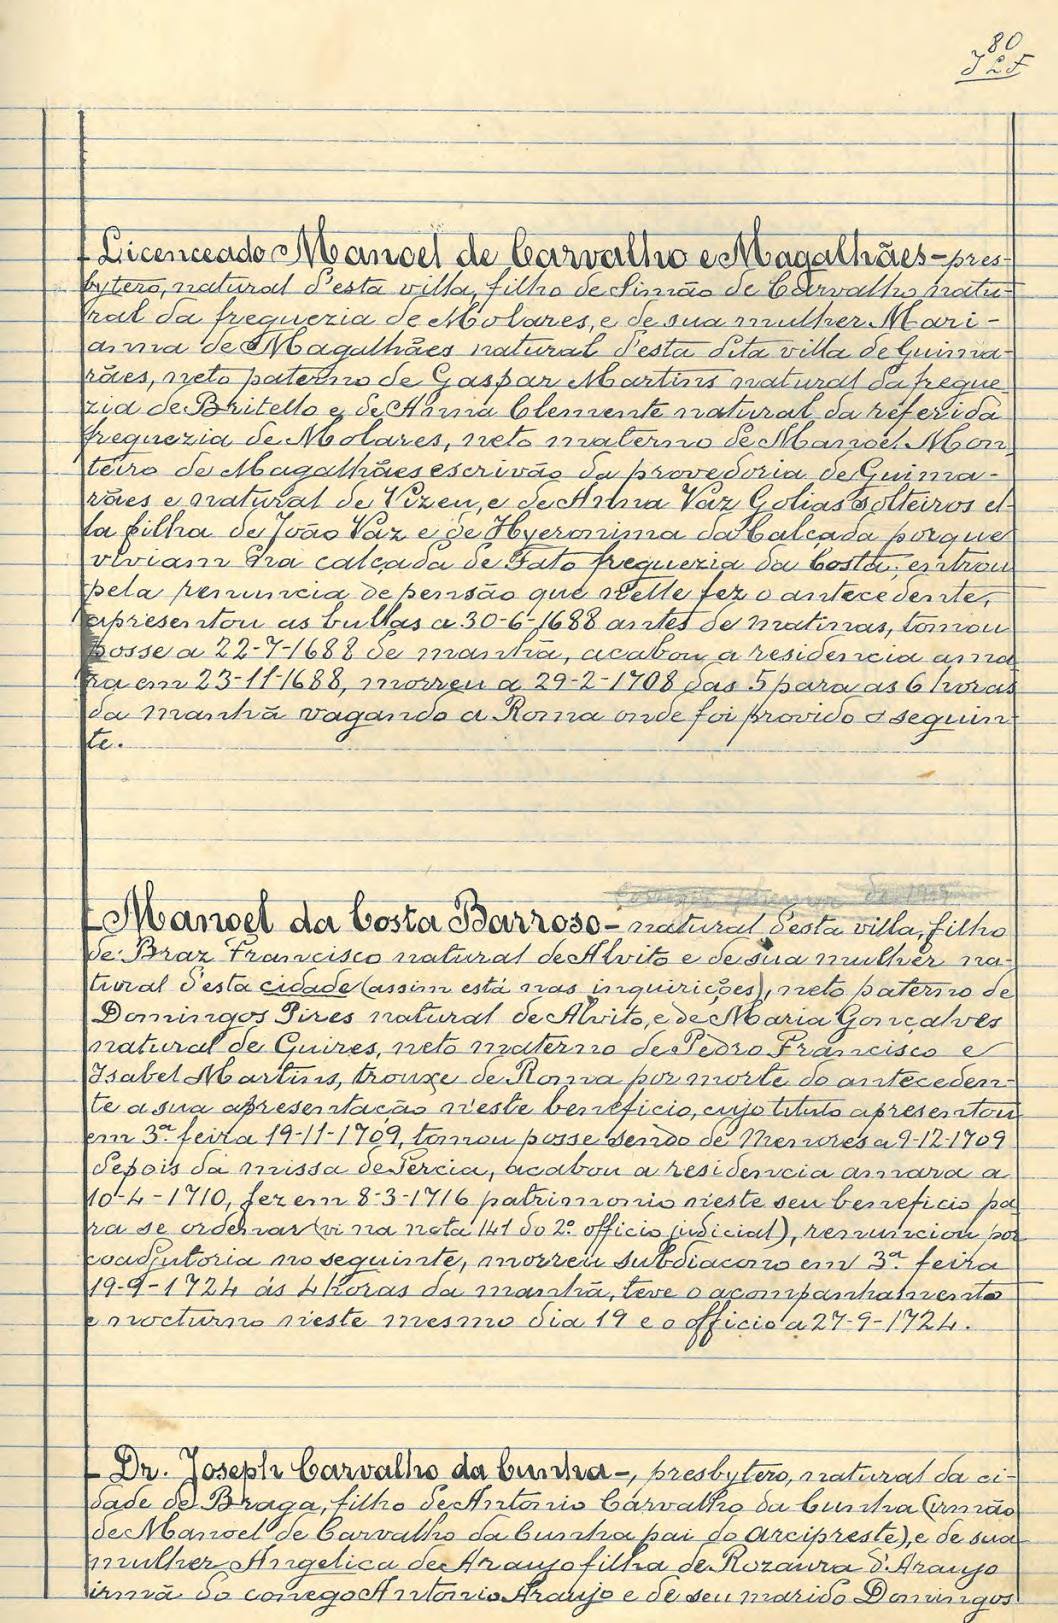 80
J L F
- Licenceado Manoel de Carvalho e Magalhães - pres-
bytero, natural d'esta villa, filho de Simão de Carvalho natu-
ral da freguezia de Molares, e de sua mulher Mari-
anna de Magalhães natural d'esta dita villa de Guima-
rães, neto paterno de Gaspar Martins natural da fregue-
zia de Britello e de Anna Clemente natural da referida
freguezia de Molares, neto materno de Manoel Mon-
teiro de Magalhães escrivão da provedoria de Guima-
rães e natural de Vizeu, e de Anna Vaz Golias solteiros el-
la filha de João Vaz e de Hyeronima da Calçada porque
viviam na calçada de Fato freguezia da Costa; entrou
pela renuncia de pensão que n'elle fez o antecedente,
apresentou as bullas a 30-6-1688 antes de matinas, tomou
posse a 22-7-1688 de manhã, acabou a residencia ama-
ra em 23-11-1688, morreu a 29-2-1708 das 5 para as 6 horas
da manhã vagando a Roma onde foi provido o seguin-
te.
- Manoel da Costa Barroso - natural d'esta villa, filho
de Braz Francisco natural de Alvito e de sua mulher na-
tural d'esta cidade (assim está nas inquirições), neto paterno de
Domingos Pires natural de Alvito, e de Maria Gonçalves
natural de Guires, neto materno de Pedro Francisco e
Isabel Martins, trouxe de Roma por morte do anteceden-
te a sua apresentação n'este beneficio, cujo titulo apresentou
em 3ª feira 19-11-1709, tomou posse sendo de Menores a 9-12-1709
depois da missa de Percia, acabou a residencia amara a
10-4-1710, fez em 8-3-1716 patrimonio n'este seu beneficio pa-
ra se ordenar (vi na nota 141 do 2º officio judicial), renunciou por
coadjutoria no seguinte, morreu subdiacono em 3ª feira
19-9-1724 ás 4 horas da manhã, teve o acompanhamento
e nocturno n'este mesmo dia 19 e o officio a 27-9-1724.
- Dr. Joseph Carvalho da Cunha -, presbytero, natural da ci-
dade de Braga, filho de Antonio Carvalho da Cunha (irmão
de Manoel de Carvalho da Cunha pai do arcipreste), e de sua
mulher Angelica de Araujo filha de Rozaura d'Araujo
irmã do conego Antonio Araujo e de seu marido Domingos